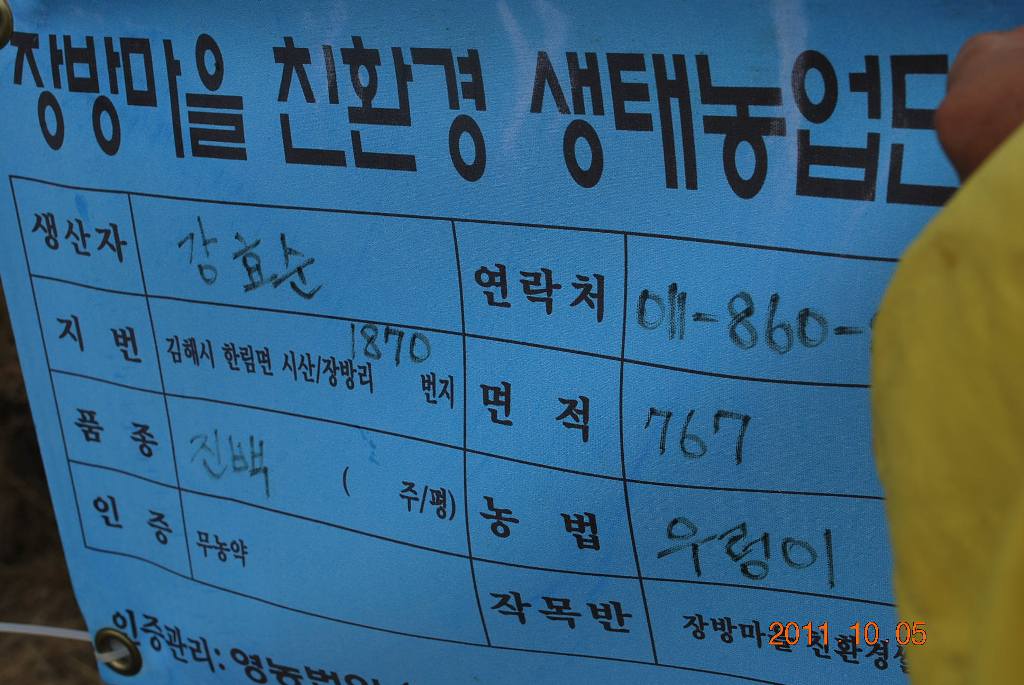 장방마을 친환경 생태농업단
생산자 강효순 연락처 011-860-
지 번 김해시 한림면 시산/장방리 1870 번지 면 적 767
품 종 진백 ( 주/평) 농 법 우렁이
인 증 무농약 작목반 장방마을 친환경쌀
인증관리: 영농법인
2011.10.05